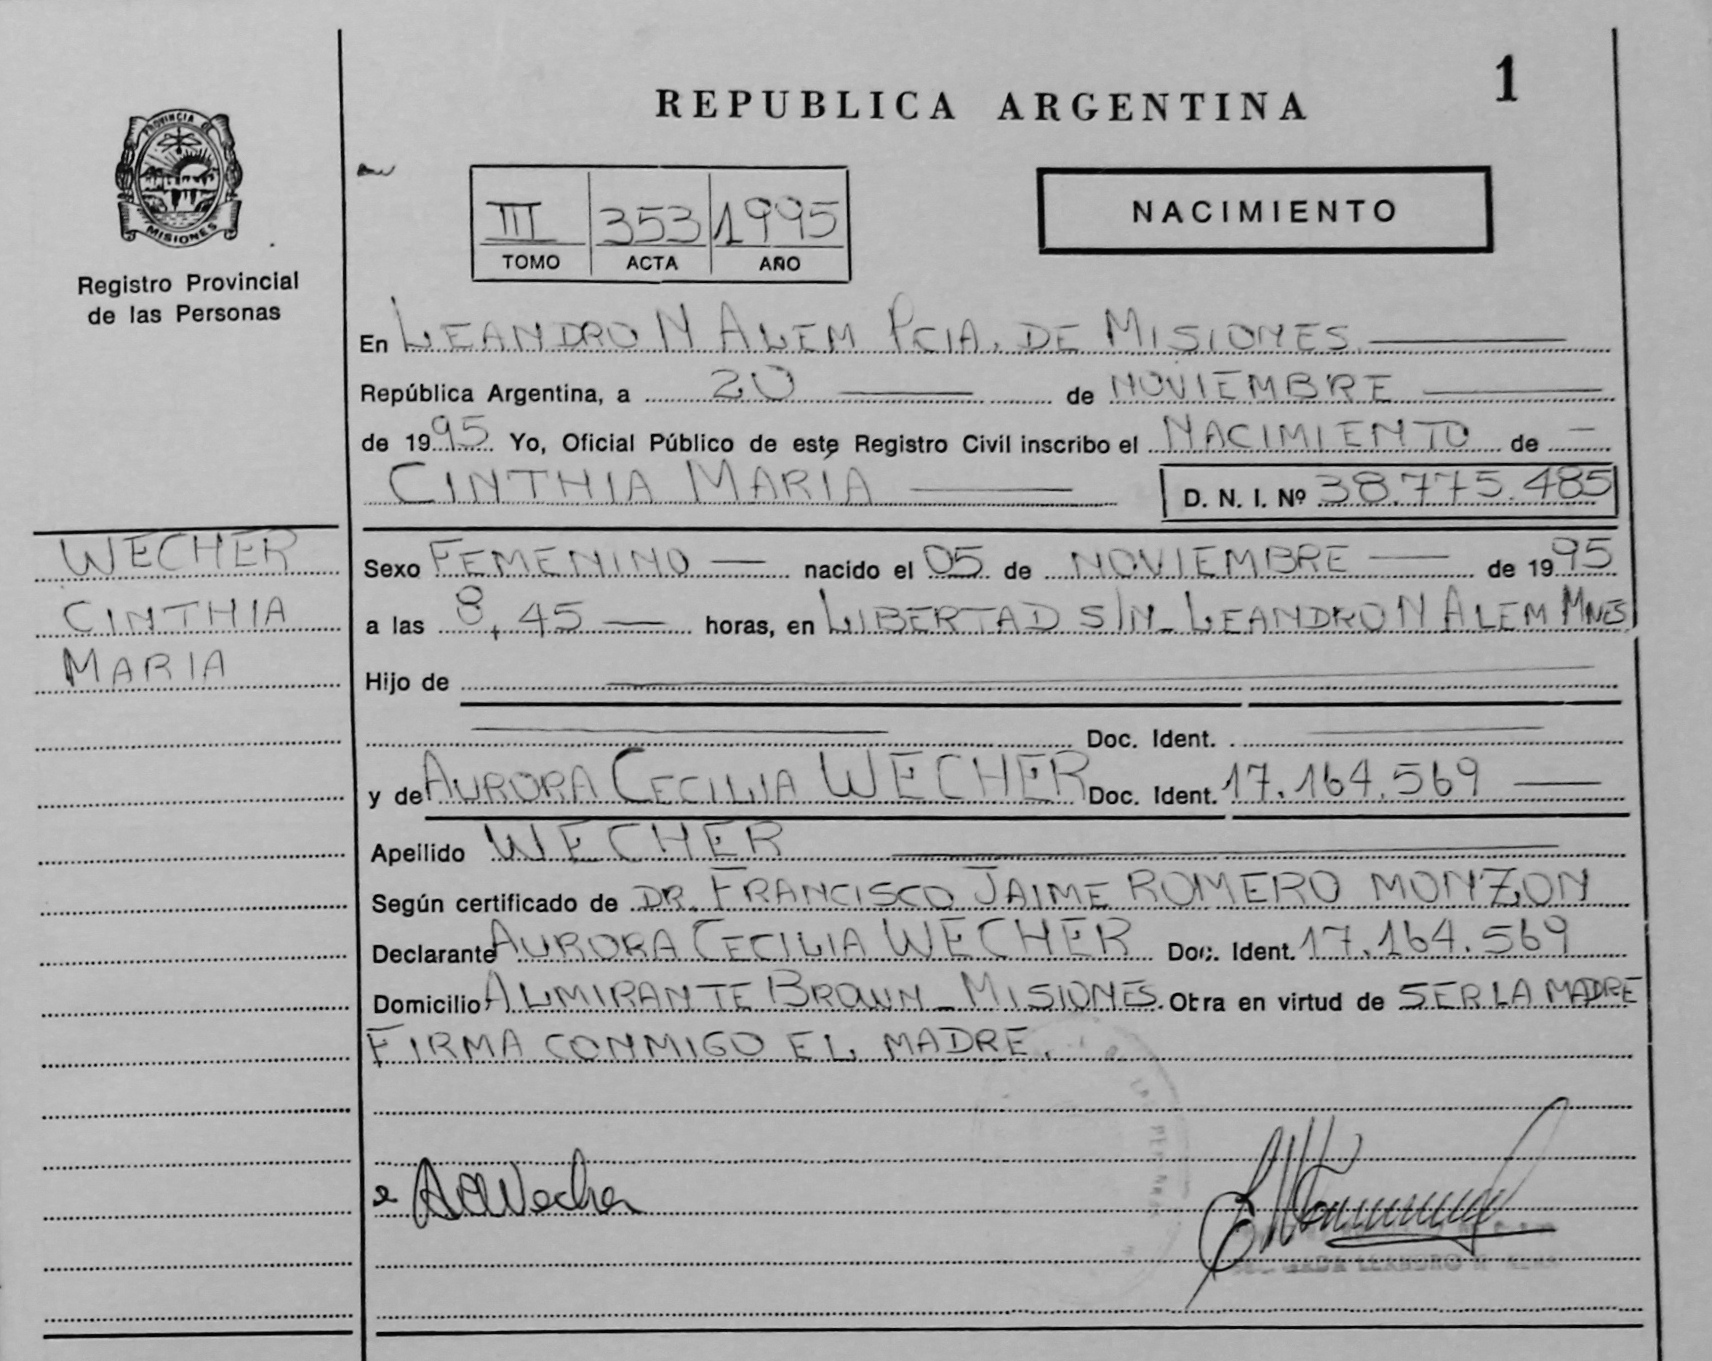 1
REPUBLICA ARGENTINA
PROVINCIA DE
MISIONES
Registro Provincial
de las Personas
III 353 1995
TOMO ACTA AÑO
NACIMIENTO
En LEANDRO N ALEM PCIA. DE MISIONES
República Argentina, a 20 de NOVIEMBRE
de 1995 Yo, Oficial Público de este Registro Civil inscribo el NACIMIENTO de
CINTHIA MARIA D. N. I. Nº 38.775.485
WECHER
CINTHIA
MARIA
Sexo FEMENINO nacido el 05 de NOVIEMBRE de 1995
a las 8,45 horas, en LIBERTAD S/N_ LEANDRO N ALEM MNES
Hijo de
Doc. Ident.
y de AURORA CECILIA WECHER Doc. Ident. 17.164.569
Apellido WECHER
Según certificado de DR. FRANCISCO JAIME ROMERO MONZON
Declarante AURORA CECILIA WECHER Doc. Ident. 17.164.569
Domicilio ALMIRANTE BROWN_ MISIONES. Obra en virtud de SER LA MADRE
FIRMA CONMIGO EL MADRE.
LEANDRO N